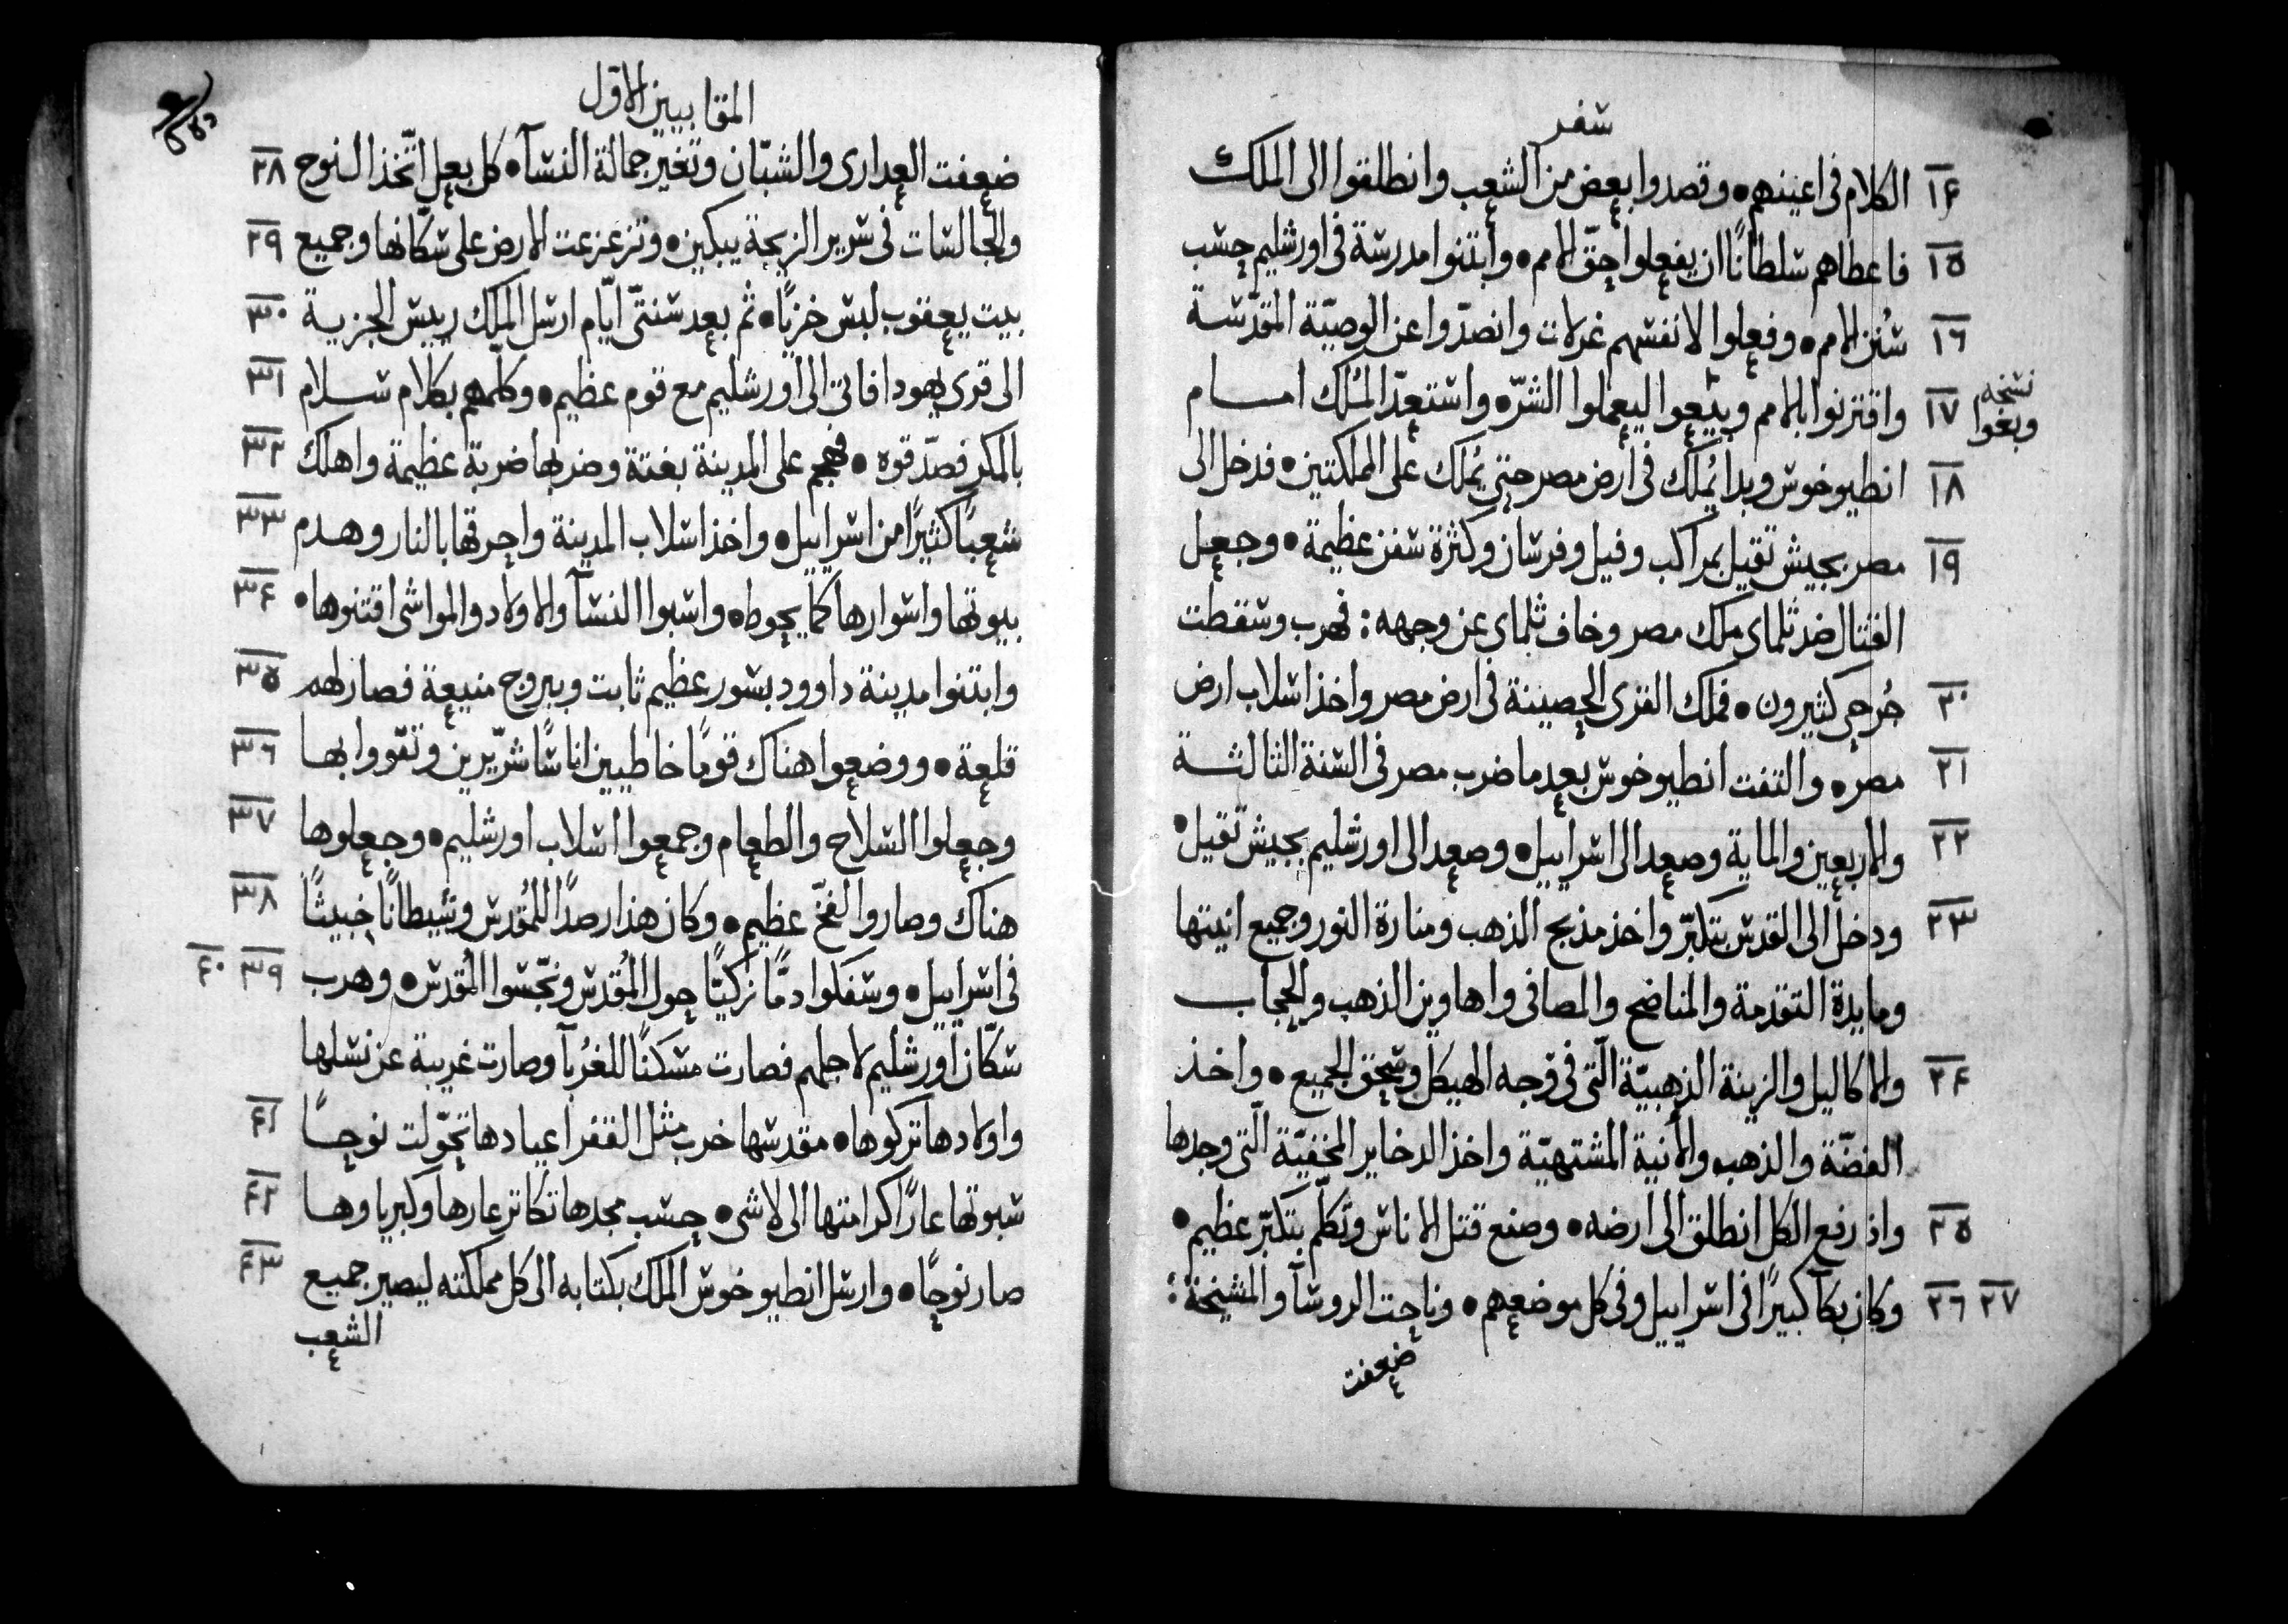 سفر
١٤ الكلام في اعينهم • وقصدوا بعض من الشعب وانطلقوا الى الملك
١٥ فاعطاهم سلطانًا ان يفعلوا حقّ الامم • وابتنوا مدرسة في اورشليم حسب
١٦ سُنن الامم • وفعلوا لانفسهم غرلات وانصدّوا عن الوصيّة المقدّسة
١٧ واقترنوا بالامم وبيعوا ليعملوا الشرّ • واستعدّ المُلك امام
نسخه وبغوا
١٨ انطيوخوس وبدا يُملك في أرض مصر حتى يُملك على المملكتين • فدخل الى
١٩ مصر بجيش تقيل بمراكب وفيل وفرسان وكثرة سفن عظيمة • وجعل
القتال ضد ثلماى ملك مصر وخاف ثلماى عن وجهه : فهرب وسقطت
٢٠ جُرحى كثيرون • فملك القرى الحصينة في ارض مصر واخذ اسلاب ارض
٢١ مصر • والتفت انطيوخوس بعد ما ضرب مصر في السنة الثالثة
٢٢ والاربعين والماية وصعد الى اسراييل • وصعد الى اورشليم بجيش تقيل •
٢٣ ودخل الى القدس بتكبّر واخذ مذبح الذهب ومنارة النور وجميع انيتها
ومايدة التقدمة والمناضح والمصافي واهاوين الذهب والحجاب
٢٤ والاكاليل والزينة الذهبيّة الّتي في وجه الهيكل وسحق الجميع • واخذ
الفضّة والذهب والأنية المشتهيّة واخذ الدخاير المخفيّة الّتي وجدها
٢٥ واذ رفع الكل انطلق الى ارضه • وصنع قتل الاناس وتكلّم بتكبّر عظيم •
٢٦ ٢٧ وكان بكآ كبيرًا في اسراييل وفي كل موضعهم • وناحت الروسآ والمشيخة :
ضعفت
المقابيين الاوّل
ضعفت العدارى والشبّان وتغير جمالة النسآ • كل بعل اتّخذ النوح ٢٨
والجالسات في سرير الزيجة يبكين • وتزعزعت الارض على سكّانها وجميع ٢٩
بيت يعقوب لبس خزيًا • ثم بعد سنتي ايّام ارسل الملك رييس الجزية ٣٠
الى قرى يهودا فاتى الى اورشليم مع قوم عظيم • وكلّمهم بكلام سلام ٣١
بالمكر فصدّقوه • فهجم على المدينة بغتة وضربها ضربة عظيمة واهلك ٣٢
شعبًا كثيرًا من اسراييل • واخذ اسلاب المدينة واحرقها بالنار وهدم ٣٣
بيوتها واسوارها كما يحوط • واسبوا النسآ والاولاد والمواشي اقتنوها • ٣٤
وابتنوا مدينة داوود بسور عظيم ثابت وبروج منيعة فصار لهم ٣٥
قلعة • ووضعوا هناك قومًا خاطيين اناسًا شرّيرين وتقووا بها ٣٦
وجعلوا السلاح والطعام وجمعوا اسلاب اورشليم • وجعلوها ٣٧
هناك وصاروا لفخّ عظيم • وكان هذا رصدًا للمُقدس وشيطانًا خبيثًا ٣٨
في اسراييل • وسفكوا دمًّا زكيّا حول المُقدس ونجّسوا المُقدس • وهرب ٣٩ ٤٠
سكّان اورشليم لاجلهم فصارت مسكنًا للغُربآ وصارت غريبة عن نسلها
واولادها تركوها • مقدسها خرب مثل القفر اعيادها تحوّلت نوحًا ٤١
سبوتها عارًا كرامتها الى لاشى • حسب مجدها تكاتر عارها وكبرياوها ٤٢
صار نوحًا • وارسل انطيوخوس الملك بكتابه الى كل مملكته ليصير جميع ٤٣
الشعب